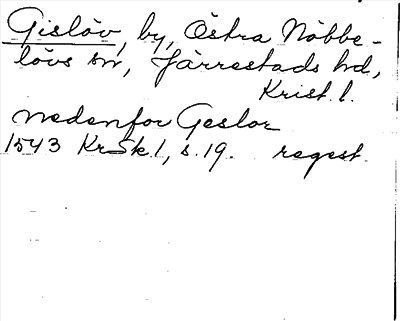 Gislöv, by, Östra Nöbbe-
lövs sn, Järrestads hd,
Krist. l.
nedenfor Geslor
1543 KrSk 1, s. 19. regest.